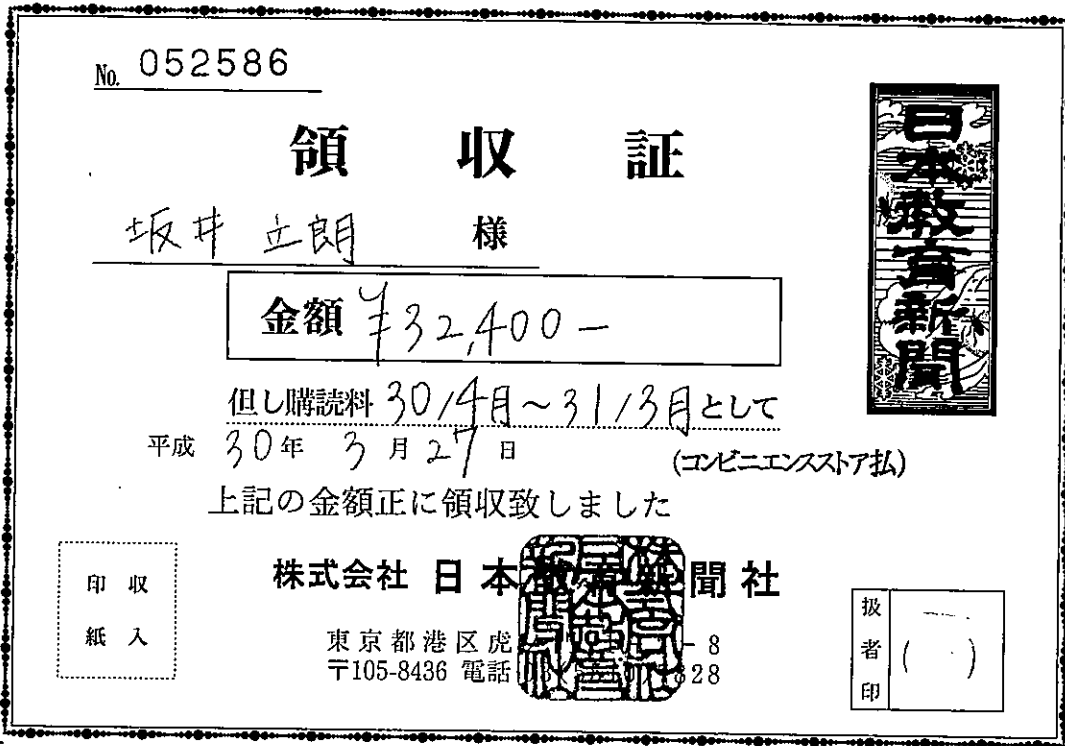 No. 052586
領収証
坂井 立朗 様
日本教育新聞
金額 ¥32,400-
但し購読料 30/4月~31/3月として
平成 30年 3月 27日
(コンビニエンスストア払)
上記の金額正に領収致しました
株式会社 日本教育新聞社
東京都港区虎 - 8
〒105-8436 電話 328
収入
印紙
扱者印